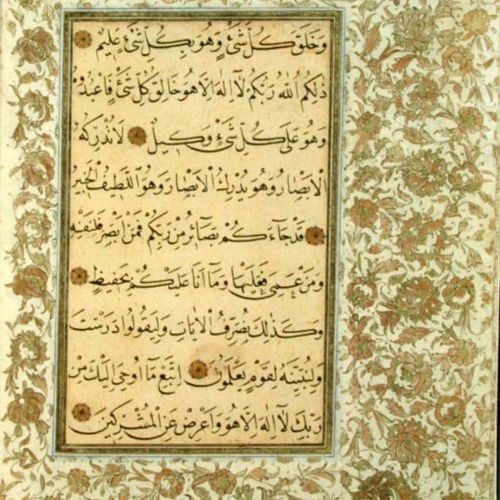 وَخَلَقَ كُلَّ شَيْءٍ وَهُوَ بِكُلِّ شَيْءٍ عَلِيمٌ
ذٰلِكُمُ اللهُ رَبُّكُمْ لَآ اِلٰهَ اِلَّا هُوَ خَالِقُ كُلِّ شَيْءٍ فَاعْبُدُوهُ
وَهُوَ عَلٰى كُلِّ شَيْءٍ وَكِيلٌ لَا تُدْرِكُهُ
الْاَبْصَارُ وَهُوَ يُدْرِكُ الْاَبْصَارَ وَهُوَ اللَّطِيفُ الْخَبِيرُ
قَدْ جَآءَكُمْ بَصَآئِرُ مِنْ رَبِّكُمْ فَمَنْ اَبْصَرَ فَلِنَفْسِهِ
وَمَنْ عَمِيَ فَعَلَيْهَا وَمَآ اَنَا عَلَيْكُمْ بِحَفِيظٍ
وَكَذٰلِكَ نُصَرِّفُ الْاٰيَاتِ وَلِيَقُولُوا دَرَسْتَ
وَلِنُبَيِّنَهُ لِقَوْمٍ يَعْلَمُونَ اِتَّبِعْ مَآ اُوحِيَ اِلَيْكَ مِنْ
رَبِّكَ لَآ اِلٰهَ اِلَّا هُوَ وَاَعْرِضْ عَنِ الْمُشْرِكِينَ